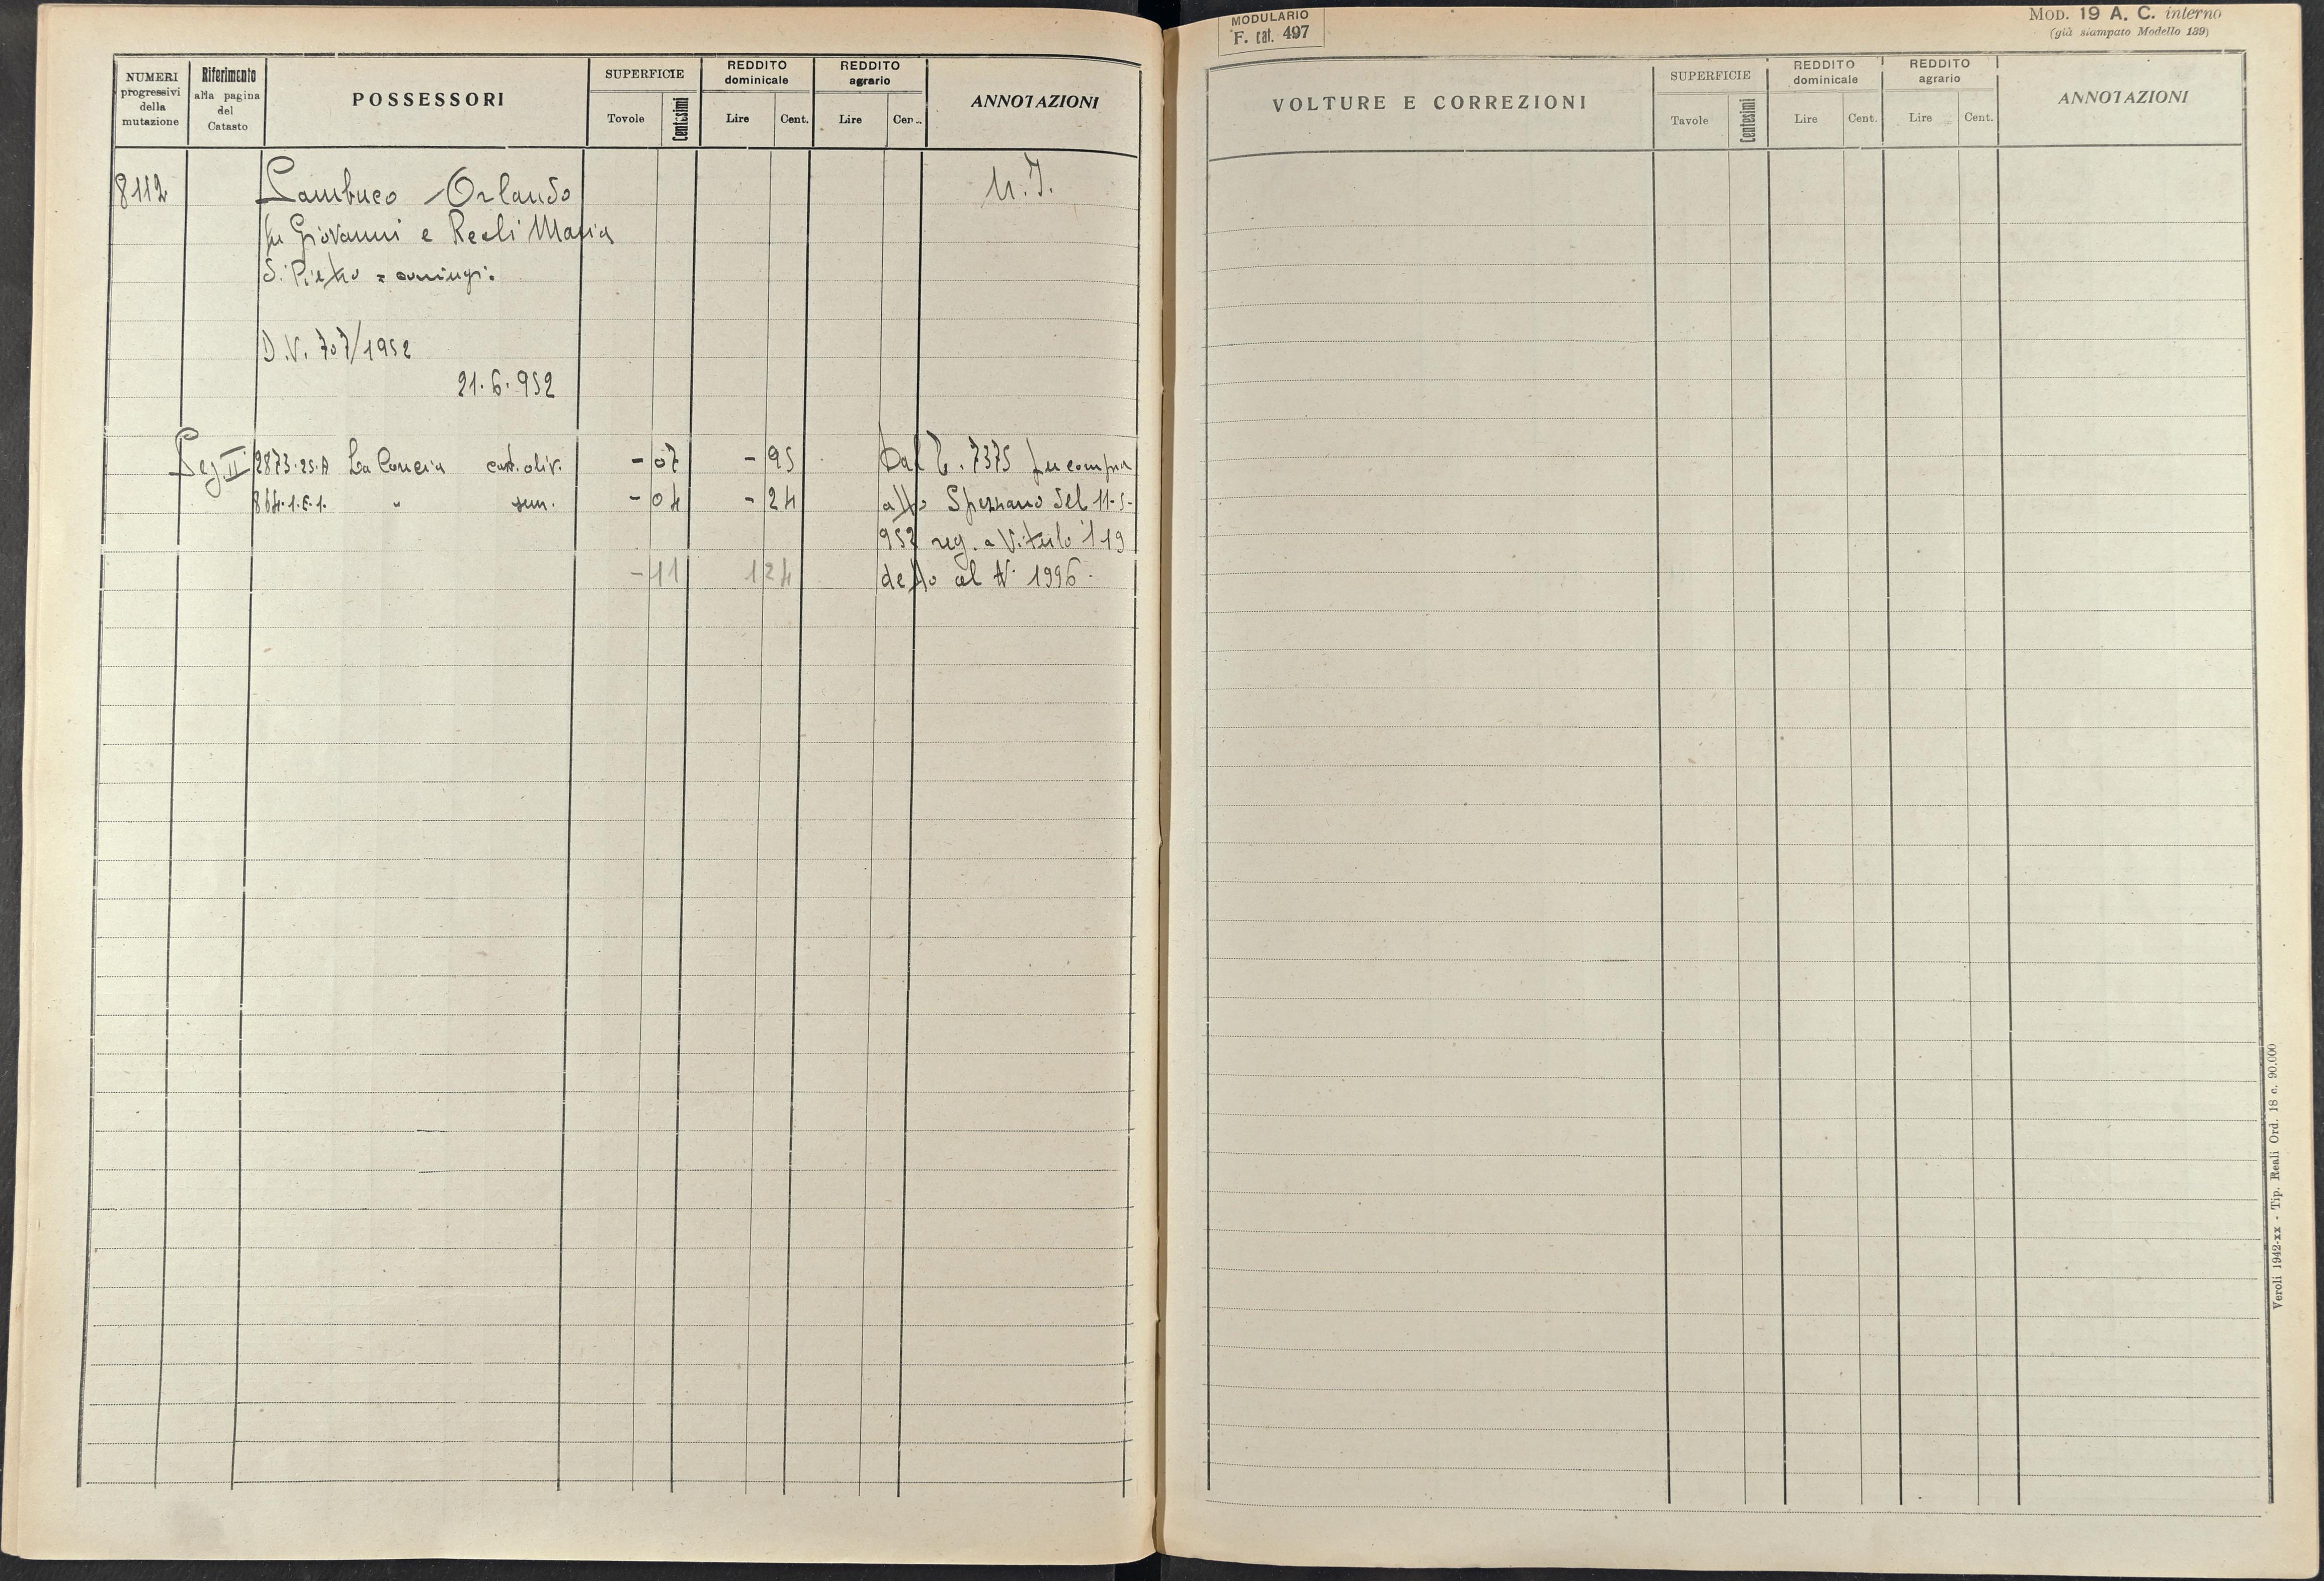 NUMERI progressivi della mutazione
Riferimento alla pagina del Catasto
POSSESSORI
SUPERFICIE
Tavole
Centesimi
REDDITO dominicale
Lire
Cent.
REDDITO agrario
Lire
Cen..
ANNOTAZIONI
8112
Sambuco Orlando
fu Giovanni e Reali Maria
S. Pietro =
U.I.
D.V. 707/1952
21.6.952
Sez II 2873.25.A La Concia cast. oliv. - 07 - 95
864.1.E.1. " sem. - 04 - 24
- 11 1 24
Dal P. 7375 per compra
atto Spezzano del 11-5-
952 reg. a Viterbo il 19
detto al N. 1996.
MODULARIO
F. cat. 497
MOD. 19 A. C. interno
(già stampato Modello 139)
VOLTURE E CORREZIONI
SUPERFICIE
Tavole
Centesimi
REDDITO dominicale
Lire
Cent.
REDDITO agrario
Lire
Cent.
ANNOTAZIONI
Veroli 1942-xx - Tip. Reali Ord. 18 c. 90.000